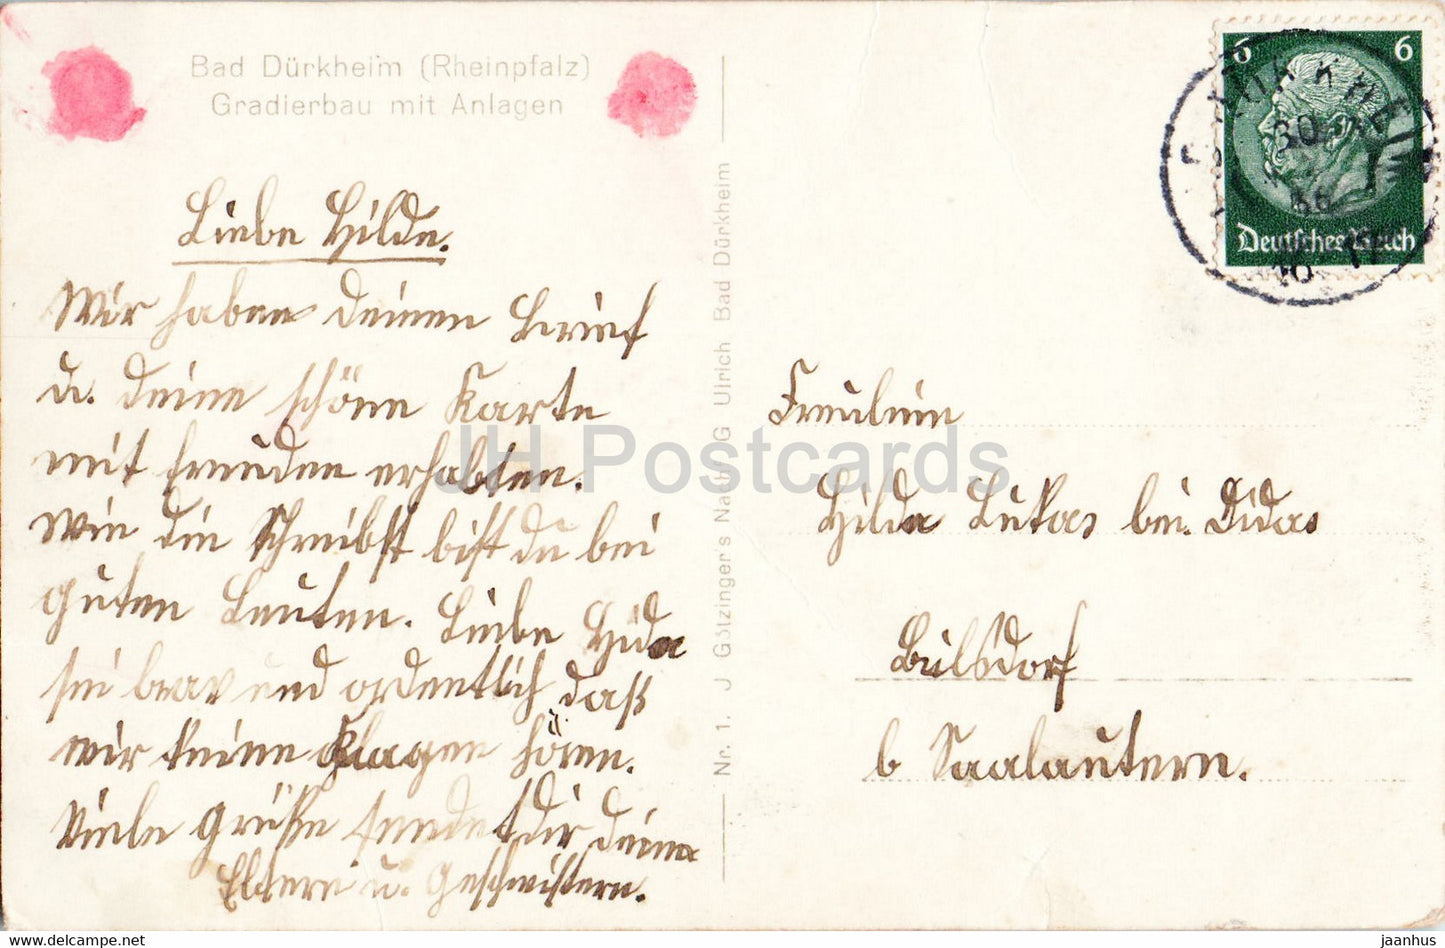 Bad Dürkheim (Rheinpfalz)
Gradierbau mit Anlagen
Liebe Hilde.
Wir haben deinen Brief
u. deine schöne Karte
mit Freuden erhalten.
Wie du schreibst bist du bei
guten Leuten. Liebe Hilda
sei brav und ordentlich daß
wir keine Klagen hören.
Viele Grüße sendet dir deine
Eltern u. Geschwistern.
Nr. 1. J Götzinger's Nachf G Ulrich Bad Dürkheim
6 6
Deutsches Reich
Fräulein
Hilda Lukas bei Didas
Bilsdorf
b Saalautern.
JH Postcards
jaanhus — Delcampe.net